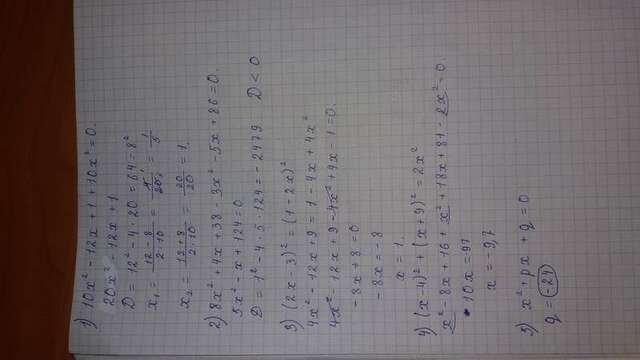 1) 10x² - 12x + 1 + 10x² = 0.
20x² - 12x + 1
D = 12² - 4 · 20 = 64 = 8²
x₁ = (12 - 8)/(2 · 10) = 4/20 = 1/5
x₂ = (12 + 8)/(2 · 10) = 20/20 = 1.
2) 8x² + 4x + 38 - 3x² - 5x + 86 = 0.
5x² - x + 124 = 0
D = 1² - 4 · 5 · 124 = - 2479 D < 0
3) (2x - 3)² = (1 - 2x)²
4x² - 12x + 9 = 1 - 4x + 4x²
4x² - 12x + 9 - 4x² + 4x - 1 = 0.
- 8x + 8 = 0
- 8x = - 8
x = 1.
4) (x - 4)² + (x + 9)² = 2x²
x² - 8x + 16 + x² + 18x + 81 - 2x² = 0
10x = -97
x = - 9,7
5) x² + px + q = 0
q = -24